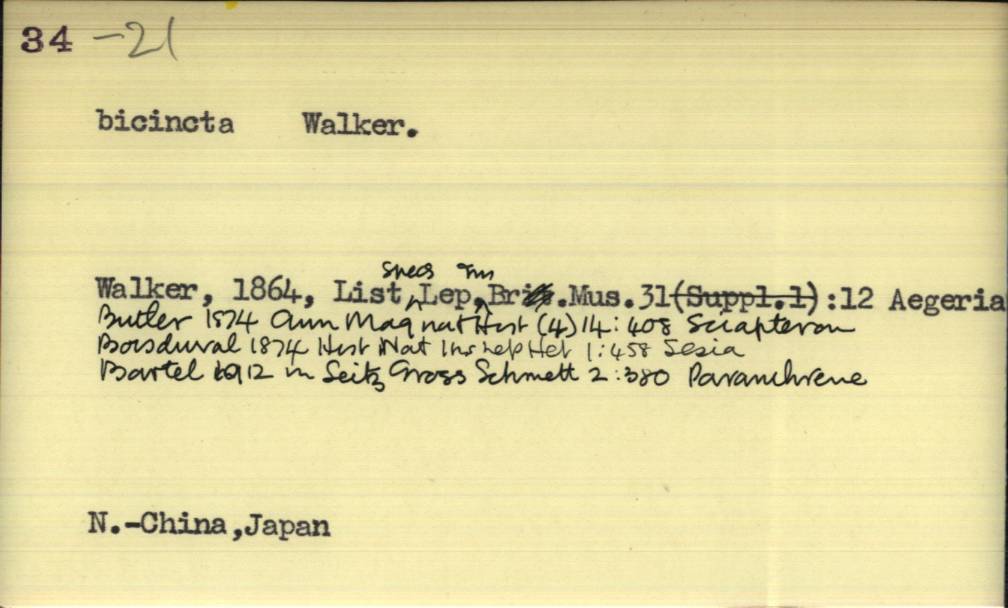 34 -21
bicincta Walker.
Walker, 1864, List Specs Lep. Ins Br.Mus.31(Suppl.1):12 Aegeria
Butler 1874 Ann Mag nat Hist (4) 14: 408 Sciapteron
Boisduval 1874 Hist Nat Ins Lep Het 1:458 Sesia
Bartel 1912 in Seitz Gross Schmett 2:380 Paranthrene
N.-China,Japan